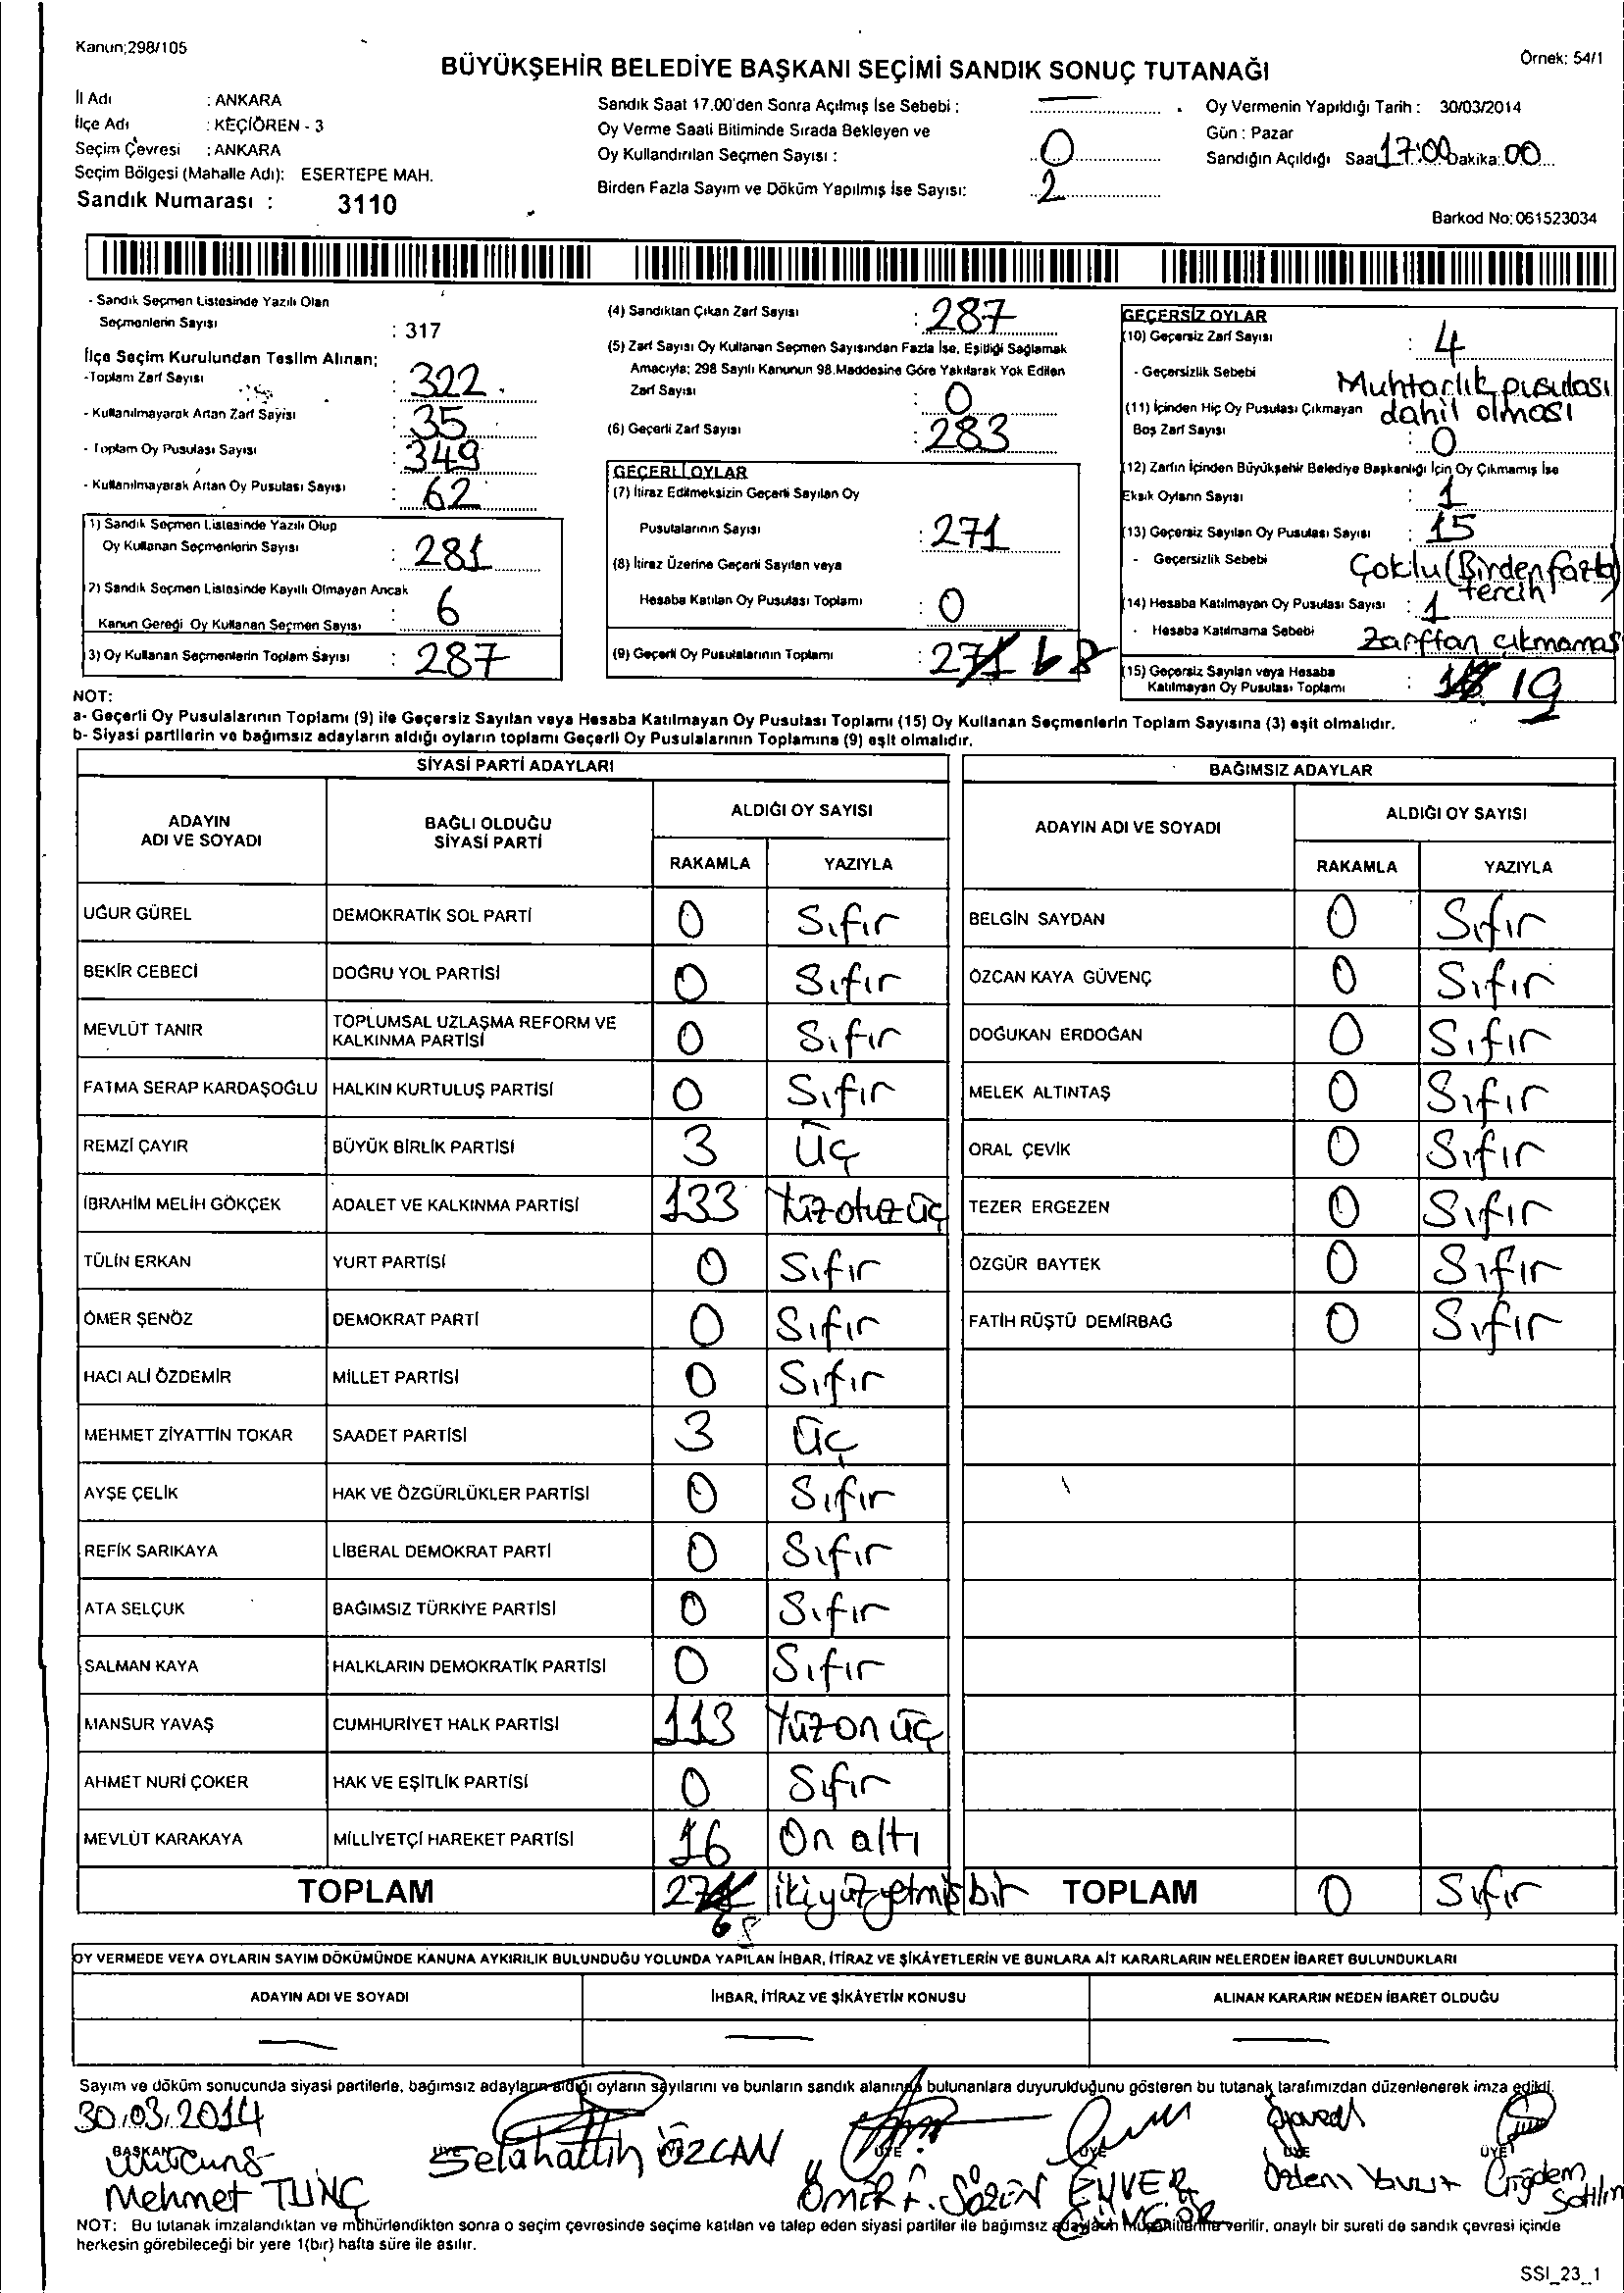 Kanun;298/105
BÜYÜKŞEHİR BELEDİYE BAŞKANI SEÇİMİ SANDIK SONUÇ TUTANAĞI
Örnek: 54/1
İl Adı : ANKARA
İlçe Adı : KEÇİÖREN - 3
Seçim Çevresi : ANKARA
Seçim Bölgesi (Mahalle Adı): ESERTEPE MAH.
Sandık Numarası : 3110
Sandık Saat 17.00'den Sonra Açılmış İse Sebebi :
Oy Verme Saati Bitiminde Sırada Bekleyen ve
Oy Kullandırılan Seçmen Sayısı : 0
Birden Fazla Sayım ve Döküm Yapılmış İse Sayısı: 2
Oy Vermenin Yapıldığı Tarih : 30/03/2014
Gün : Pazar
Sandığın Açıldığı Saat 17:00 Dakika: 00
Barkod No: 061523034
- Sandık Seçmen Listesinde Yazılı Olan
Seçmenlerin Sayısı : 317
İlçe Seçim Kurulundan Teslim Alınan;
-Toplam Zarf Sayısı : 322
- Kullanılmayarak Artan Zarf Sayısı : 35
- Toplam Oy Pusulası Sayısı : 349
- Kullanılmayarak Artan Oy Pusulası Sayısı : 62
1) Sandık Seçmen Listesinde Yazılı Olup
Oy Kullanan Seçmenlerin Sayısı : 281
2) Sandık Seçmen Listesinde Kayıtlı Olmayan Ancak
Kanun Gereği Oy Kullanan Seçmen Sayısı : 6
3) Oy Kullanan Seçmenlerin Toplam Sayısı : 287
(4) Sandıktan Çıkan Zarf Sayısı : 287
(5) Zarf Sayısı Oy Kullanan Seçmen Sayısından Fazla İse, Eşitliği Sağlamak
Amacıyla; 298 Sayılı Kanunun 98.Maddesine Göre Yakılarak Yok Edilen
Zarf Sayısı : 0
(6) Geçerli Zarf Sayısı : 283
GEÇERLİ OYLAR
(7) İtiraz Edilmeksizin Geçerli Sayılan Oy
Pusulalarının Sayısı : 271
(8) İtiraz Üzerine Geçerli Sayılan veya
Hesaba Katılan Oy Pusulası Toplamı : 0
(9) Geçerli Oy Pusulalarının Toplamı : 271 68
GEÇERSİZ OYLAR
(10) Geçersiz Zarf Sayısı : 4
- Geçersizlik Sebebi Muhtarlık pusulası
dahil olması
(11) İçinden Hiç Oy Pusulası Çıkmayan
Boş Zarf Sayısı : 0
(12) Zarfın İçinden Büyükşehir Belediye Başkanlığı İçin Oy Çıkmamış İse
Eksik Oyların Sayısı : 1
(13) Geçersiz Sayılan Oy Pusulası Sayısı : 15
- Geçersizlik Sebebi Çoklu (Birden fazla)
tercih
(14) Hesaba Katılmayan Oy Pusulası Sayısı : 1
- Hesaba Katılmama Sebebi Zarftan çıkmamas
(15) Geçersiz Sayılan veya Hesaba
Katılmayan Oy Pusulası Toplamı : 19
NOT:
a- Geçerli Oy Pusulalarının Toplamı (9) ile Geçersiz Sayılan veya Hesaba Katılmayan Oy Pusulası Toplamı (15) Oy Kullanan Seçmenlerin Toplam Sayısına (3) eşit olmalıdır.
b- Siyasi partilerin ve bağımsız adayların aldığı oyların toplamı Geçerli Oy Pusulalarının Toplamına (9) eşit olmalıdır.
SİYASİ PARTİ ADAYLARI
ADAYIN ADI VE SOYADI BAĞLI OLDUĞU SİYASİ PARTİ ALDIĞI OY SAYISI
RAKAMLA YAZIYLA
UĞUR GÜREL DEMOKRATİK SOL PARTİ 0 Sıfır
BEKİR CEBECİ DOĞRU YOL PARTİSİ 0 Sıfır
MEVLÜT TANIR TOPLUMSAL UZLAŞMA REFORM VE KALKINMA PARTİSİ 0 Sıfır
FATMA SERAP KARDAŞOĞLU HALKIN KURTULUŞ PARTİSİ 0 Sıfır
REMZİ ÇAYIR BÜYÜK BİRLİK PARTİSİ 3 Üç
İBRAHİM MELİH GÖKÇEK ADALET VE KALKINMA PARTİSİ 133 Yüzotuzüç
TÜLİN ERKAN YURT PARTİSİ 0 Sıfır
ÖMER ŞENÖZ DEMOKRAT PARTİ 0 Sıfır
HACI ALİ ÖZDEMİR MİLLET PARTİSİ 0 Sıfır
MEHMET ZİYATTİN TOKAR SAADET PARTİSİ 3 Üç
AYŞE ÇELİK HAK VE ÖZGÜRLÜKLER PARTİSİ 0 Sıfır
REFİK SARIKAYA LİBERAL DEMOKRAT PARTİ 0 Sıfır
ATA SELÇUK BAĞIMSIZ TÜRKİYE PARTİSİ 0 Sıfır
SALMAN KAYA HALKLARIN DEMOKRATİK PARTİSİ 0 Sıfır
MANSUR YAVAŞ CUMHURİYET HALK PARTİSİ 113 Yüzonüç
AHMET NURİ ÇOKER HAK VE EŞİTLİK PARTİSİ 0 Sıfır
MEVLÜT KARAKAYA MİLLİYETÇİ HAREKET PARTİSİ 16 On altı
TOPLAM 271 68 ikiyüzyetmişbir
BAĞIMSIZ ADAYLAR
ADAYIN ADI VE SOYADI ALDIĞI OY SAYISI
RAKAMLA YAZIYLA
BELGİN SAYDAN 0 Sıfır
ÖZCAN KAYA GÜVENÇ 0 Sıfır
DOĞUKAN ERDOĞAN 0 Sıfır
MELEK ALTINTAŞ 0 Sıfır
ORAL ÇEVİK 0 Sıfır
TEZER ERGEZEN 0 Sıfır
ÖZGÜR BAYTEK 0 Sıfır
FATİH RÜŞTÜ DEMİRBAĞ 0 Sıfır
TOPLAM 0 Sıfır
OY VERMEDE VEYA OYLARIN SAYIM DÖKÜMÜNDE KANUNA AYKIRILIK BULUNDUĞU YOLUNDA YAPILAN İHBAR, İTİRAZ VE ŞİKÂYETLERİN VE BUNLARA AİT KARARLARIN NELERDEN İBARET BULUNDUKLARI
ADAYIN ADI VE SOYADI İHBAR, İTİRAZ VE ŞİKÂYETİN KONUSU ALINAN KARARIN NEDEN İBARET OLDUĞU
Sayım ve döküm sonucunda siyasi partilerle, bağımsız adayların aldığı oyların sayılarını ve bunların sandık alanında bulunanlara duyurulduğunu gösteren bu tutanak tarafımızdan düzenlenerek imza edildi.
30.03.2014
BAŞKAN ÜYE ÜYE ÜYE ÜYE ÜYE
Mehmet TUNÇ Selahattin ÖZCAN ÖMER F. SÖZEN ENVER GÜNGÖR Özlem Yavuz Çiğdem
NOT: Bu tutanak imzalandıktan ve mühürlendikten sonra o seçim çevresinde seçime katılan ve talep eden siyasi partiler ile bağımsız adayların müşahitlerine verilir, onaylı bir sureti de sandık çevresi içinde
herkesin görebileceği bir yere 1(bir) hafta süre ile asılır.
SSI_23_1